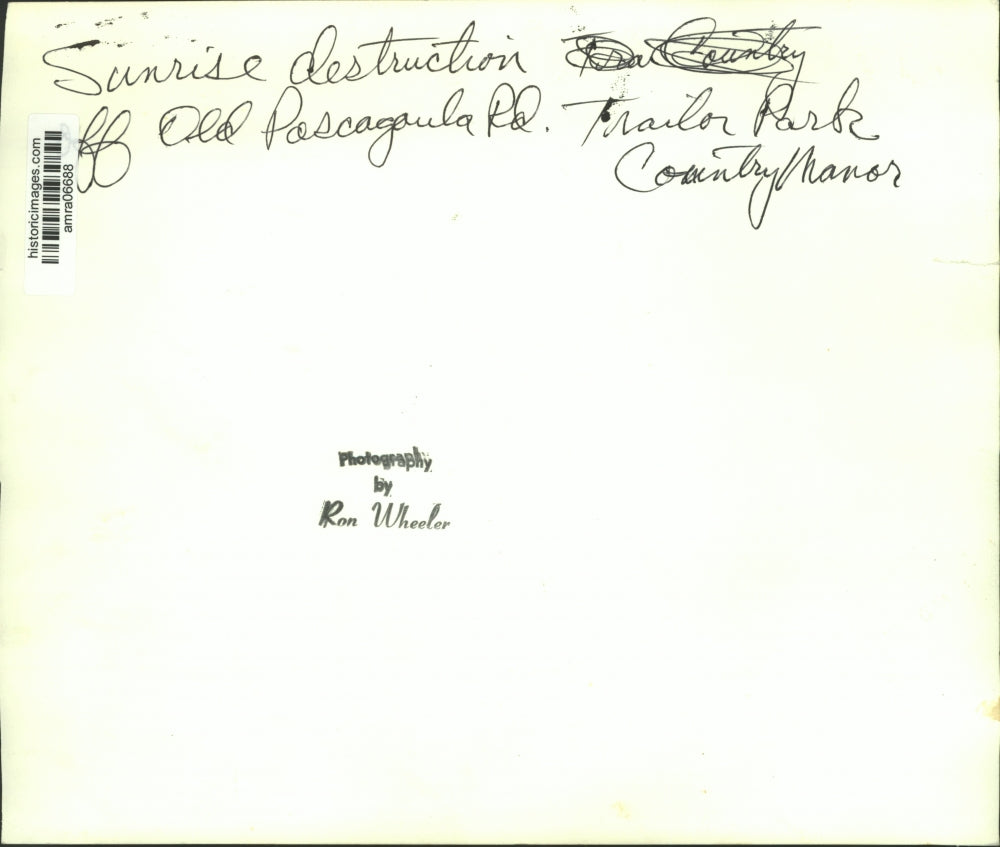 Sunrise destruction Country
off Old Pascagoula Rd. Trailor Park
Country Manor
historicimages.com
amra06688
Photography
by
Ron Wheeler